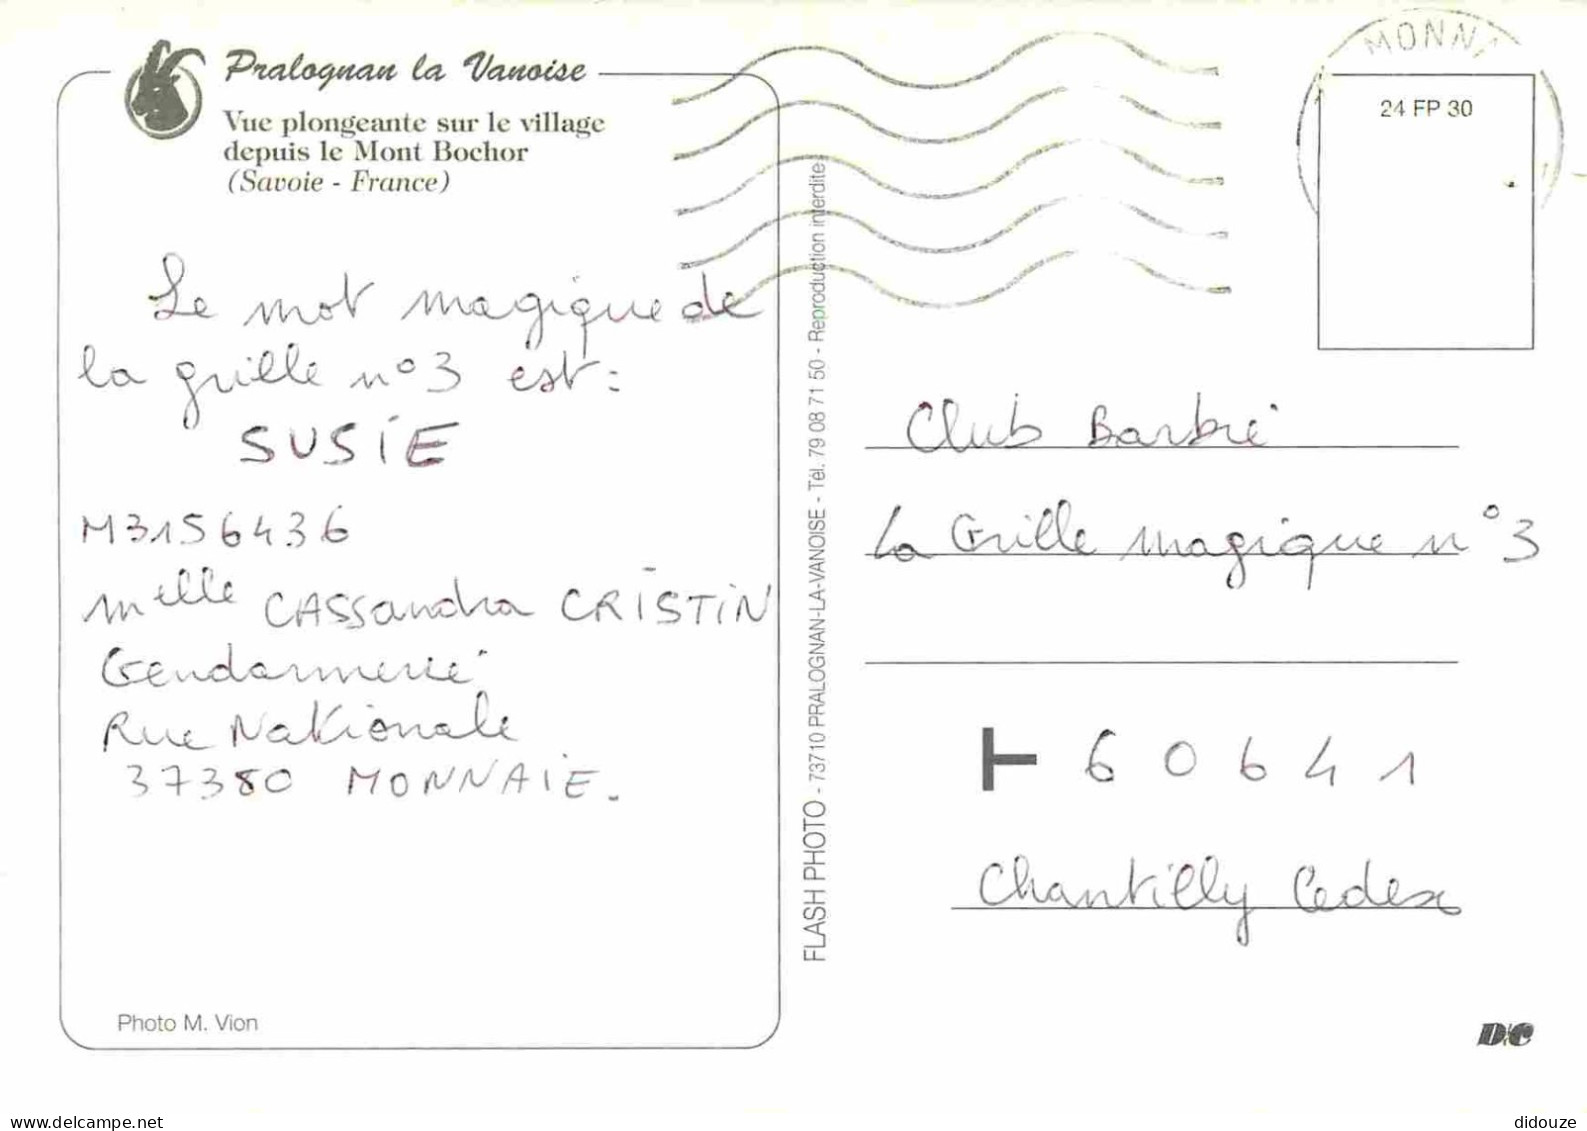 Pralognan la Vanoise
Vue plongeante sur le village
depuis le Mont Bochor
(Savoie - France)
Le mot magique de
la grille n°3 est :
SUSIE
M3156436
Melle CASSandra CRISTIN
Gendarmerie
Rue Nationale
37380 MONNAIE.
Photo M. Vion
FLASH PHOTO - 73710 PRALOGNAN-LA-VANOISE - Tél. 79 08 71 50 - Reproduction interdite
MONNA
24 FP 30
Club Barbie
La Grille magique n°3
T 60641
Chantilly Cedex
D/C
didouze